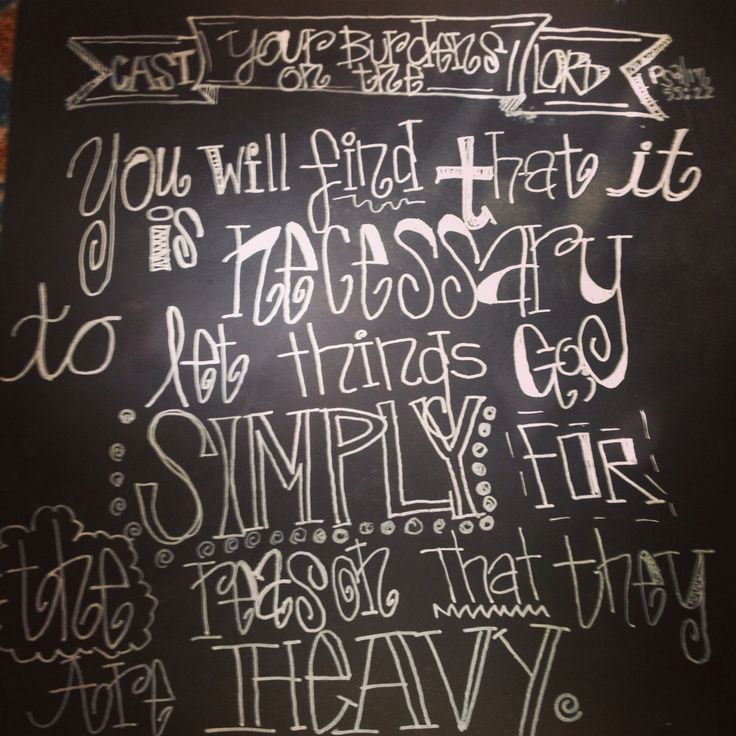 CAST Your Burdens on the LORD
Psalm 55:22
You will find that it
is necessary
to let things Go,
SIMPLY FOR
the reason that they
Are HEAVY.